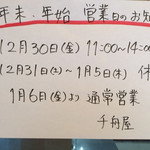 年末、年始 営業日のお知
12月30日(金) 11:00~14:00
12月31日(土)~1月5日(木) 休
1月6日(金)より 通常営業
千舟屋